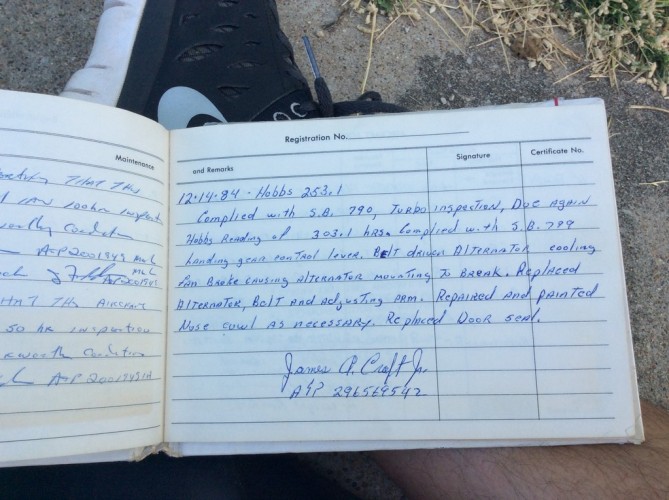 Maintenance
THAT THE
IAW 100hr Inspect
Condition
A&P 2001949
THAT THE AIRCRAFT
50 HR INSPECTION
Condition
A&P
Registration No.
and Remarks
Signature
Certificate No.
12.14.84 - Hobbs 253.1
Complied with S.B. 790, Turbo inspection, Due again
Hobbs Reading of 303.1 hrs. Complied with S.B. 799
Landing gear control lever. Belt driven Alternator cooling
Fan Broke causing Alternator mounting To Break. Replaced
Alternator, Bolt and adjusting arm. Repaired and painted
Nose cowl as necessary. Replaced Door seal.
James P. Craft Jr.
A&P 296569542